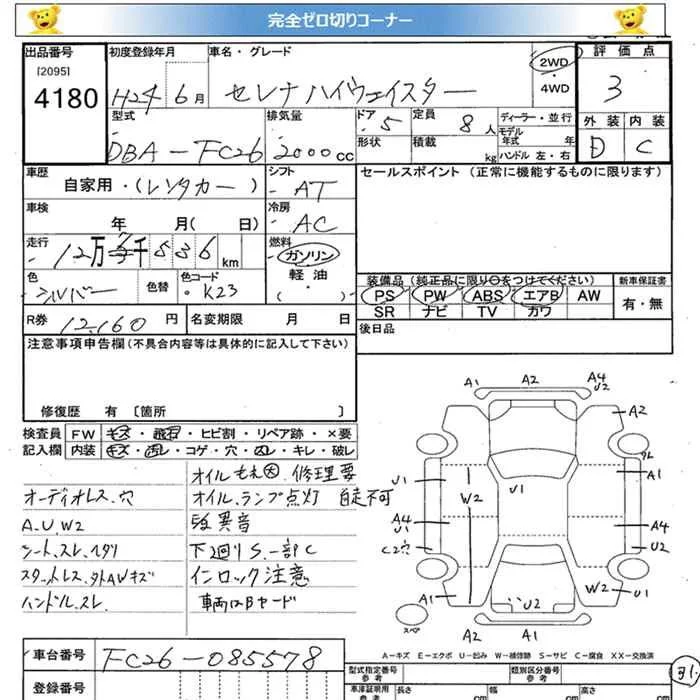 完全ゼロ切りコーナー
出品番号 初度登録年月 車名・グレード 2WD ・ 4WD 評価点
[2095]
4180 H24年6月 セレナ ハイウェイスター 3
型式 排気量 ドア 5 定員 8人 ディーラー・並行 外装 内装
DBA-FC26 2000cc 形状 積載 kg モデル年式 年 ハンドル 左・右 D C
車歴 シフト セールスポイント(正常に機能するものに限ります)
自家用・(レンタカー) AT
車検 冷房
年 月( 日) AC
走行 燃料
12万 千536km ガソリン
軽油
・( )
色 色替 色コード 装備品(純正品に限り○をつけてください) 新車保証書
シルバー K23 PS PW ABS エアB AW 有・無
SR ナビ TV カワ
R券 12,160円 名変期限 月 日 後日品
注意事項申告欄(不具合内容等は具体的に記入して下さい)
修復歴 有 〔箇所 〕
検査員 FW キズ・飛石・ヒビ割・リペア跡・×要
記入欄 内装 キズ・汚レ・コゲ・穴・スレ・キレ・破レ
オイルもれ大 修理要
オーディオレス.穴 オイル.ランプ点灯 自走不可
A.U.W2 異音
シート.スレ.ヘタリ 下廻りS.一部C
スタットレス.外AWキズ インロック注意
ハンドル.スレ 車両はBヤード
A1 A2 A4 U2
A2
U1 U1 A1
W2
A4 U1 A4
C2穴 U2
A1 U2 W2 U1
スペア A2 A1
A-キズ E-エクボ U-凹み W-補修跡 S-サビ C-腐食 XX-交換済
車台番号 FC26-085578 型式指定番号 参考 類別区分番号 参考
登録番号 車庫証明用 参考 長さ cm 幅 cm 高さ cm